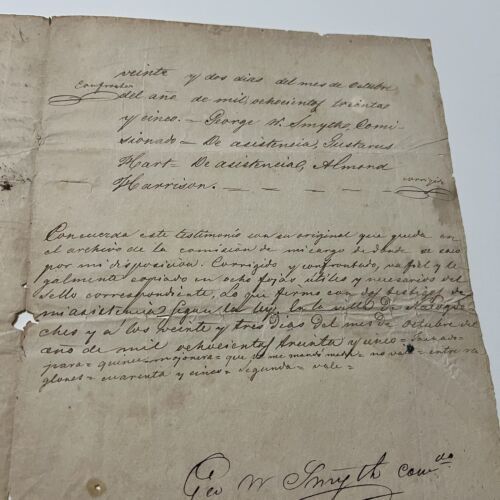 veinte y dos dias del mes de Octubre
Confrontar
del año de mil, ochocientos treinta
y cinco. — George W. Smythe, Comi-
sionado — De asistencia, Gustavus
Hart — De asistencial, Almond
Harrison. — — — — — corrigir
Concuerda este testimonio con su original que queda en
el archivo de la comision de mi cargo de donde se saco
por mi disposicion. Corrigido y confrontado, va fiel y le-
galmente copiado en ocho fojas utiles y necesarios del
sello correspondiente, lo que firmo con dos testigos de
mi asistencia segun la ley. En la villa De Nacogdo-
ches y a los veinte y tres Dias del mes De Octubre del
año de mil ochocientos treinta y cinco =
para = quince = mojonera = que = me mando = no vale = entre re-
glones = cuarenta y cinco = segunda = vale =
Geo W Smyth Comdo